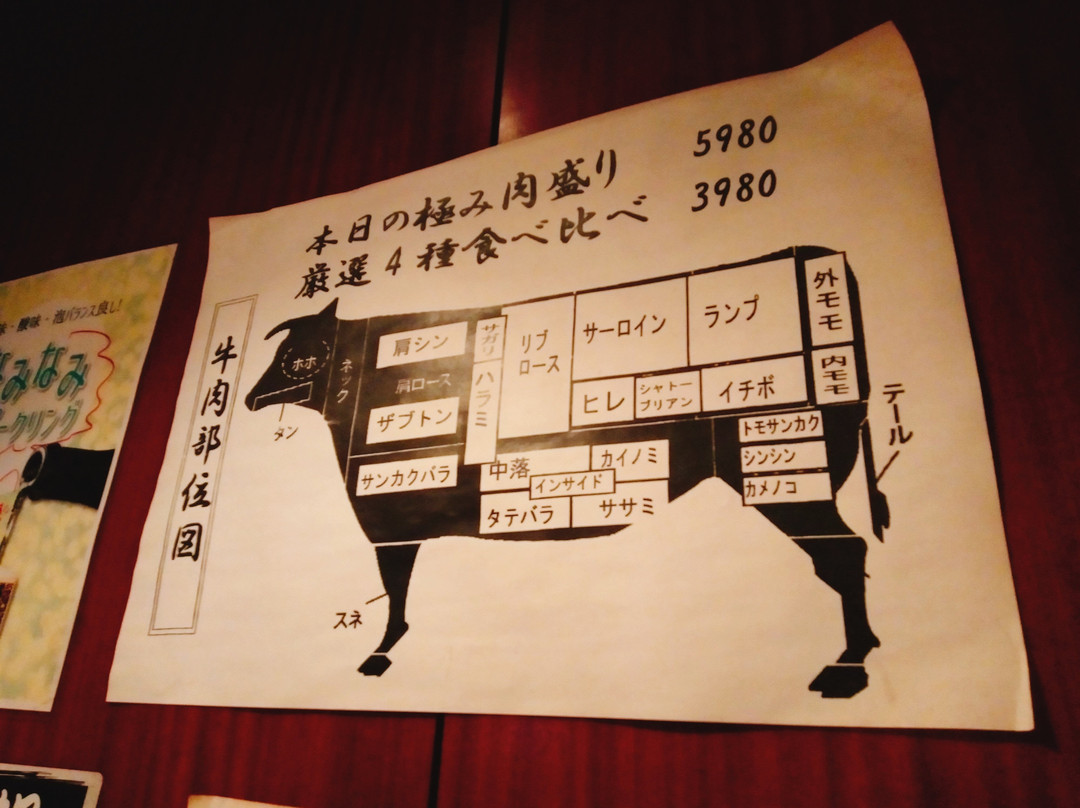 本日の極み肉盛り 5980
厳選4種食べ比べ 3980
牛肉部位図
ホホ
タン
ネック
肩シン
肩ロース
ザブトン
サンカクバラ
サガリ
ハラミ
リブ
ロース
サーロイン
ランプ
ヒレ
シャトー
ブリアン
イチボ
外モモ
内モモ
中落
カイノミ
インサイド
タテバラ
ササミ
トモサンカク
シンシン
カメノコ
テール
スネ
味・酸味・泡バランス良し!
なみなみ